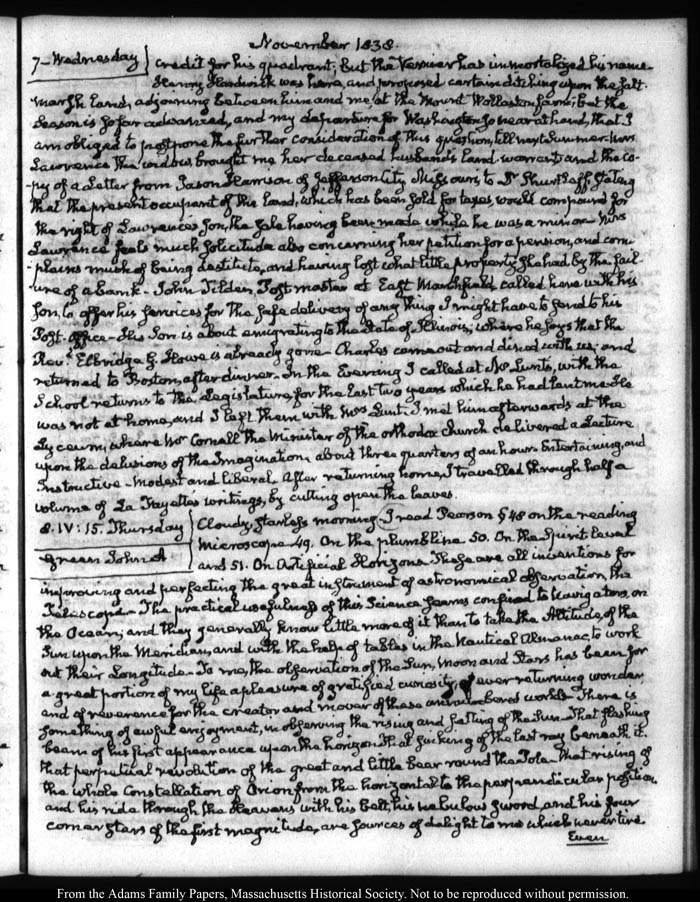 November 1838.
7- Wednesday
credit for his quadrant; but the Vernier has immortalized his name
Henry Hardwick was here, and proposed certain ditching upon the Salt
marsh land, adjoining between him and me, at the Mount Wollaston farm; but the
Season is so far advanced, and my departure for Washington so near at hand, that I
am obliged to postpone the further consideration of this question, till next Summer- Mrs
Lawrence the widow, brought me her deceased husband's Land warrant and the co-
-py of a Letter from Jason Harrison of Jefferson City, Missouri, to Dr Shurtleff stating
that the present occupant of the land, which has been sold for taxes, would compound for
the right of Lawrence's Son, the sale having been made while he was a minor- Mrs
Lawrence feels much solicitude also concerning her petition for a pension, and com-
-plains much of being destitute, and having lost what little property she had by the fail-
-ure of a bank- John Tilden, Post master at East Marshfield, called here with his
Son, to offer his services for the safe delivery of any thing I might have to send to his
Post-Office- His Son is about emigrating to the State of Illinois; where he says that the
Revd. Elbridge G. Howe is already gone- Charles came out and dined with us; and
returned to Boston, after dinner. In the Evening I called at Mr Lunt's, with the
School returns to the Legislature, for the last two years which he had lent me- He
was not at home, and I left them with Mrs Lunt. I met him afterwards at the
Lyceum, where Mr Cornell the Minister of the orthodox Church delivered a Lecture
upon the delusions of the Imagination, about three quarters of an hour. Entertaining, and
Instructive- Modest and liberal. After returning home, I travelled through half a
volume of La Fayette's writings, by cutting open the leaves.
8. IV: 15. Thursday
Green John A
Cloudy, starless morning- I read Pearson § 48 on the reading
Microscope 49. On the plumbline 50. On the Spirit level
and 51. On Artificial Horizons- These are all inventions for
improving and perfecting the great instrument of astronomical observation, the
Telescope- The practical usefulness of this Science seems confined to Navigators, on
the Ocean; and they generally know little more of it than to take the Altitude, of the
Sun upon the Meridian, and with the help of tables in the Nautical Almanac, to work
out their Longitude- To me, the observation of the Sun, Moon and Stars has been for
a great portion of my life a pleasure of gratified curiosity, of ever returning wonder,
and of reverence for the creator and mover of these unnumbered worlds- There is
something of awful enjoyment, in observing the rising and setting of the Sun- That flashing
beam of his first appearance upon the horizon; that sinking of the last ray beneath it;
that perpetual revolution of the great and little bear round the Pole- that rising of
the whole Constellation of Orion from the horizontal to the perpendicular position,
and his ride through the Heavens with his belt, his nebulous sword, and his four
corner stars of the first magnitude, are sources of delight to me which never tire.
Even
From the Adams Family Papers, Massachusetts Historical Society. Not to be reproduced without permission.